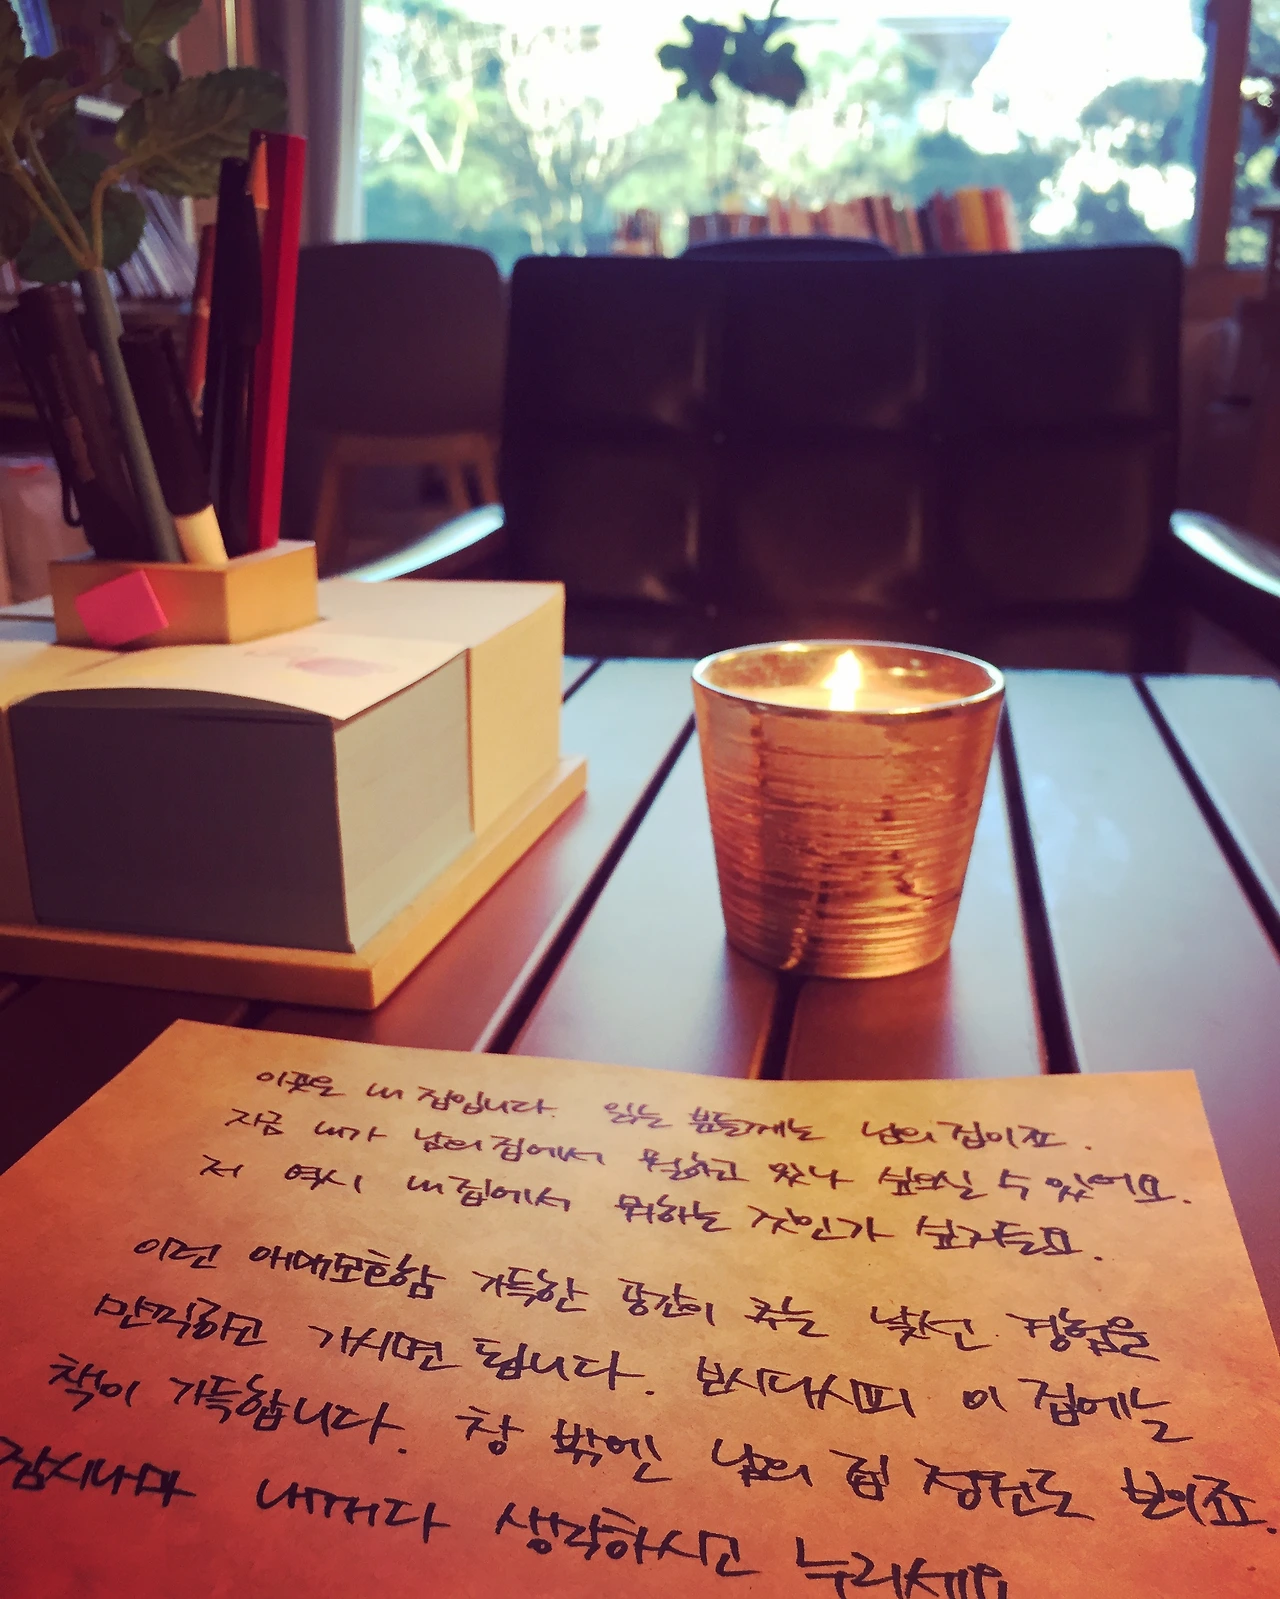 이곳은 내 집입니다. 읽는 분들께는 남의 집이죠.
지금 내가 남의 집에서 뭘하고 있나 싶으실 수 있어요.
저 역시 내 집에서 뭐하는 것인가 싶거든요.
이런 애매모호함 가득한 공간이 주는 낯선 경험을
만끽하고 가시면 됩니다. 보시다시피 이 집에는
책이 가득합니다. 창 밖엔 남의 집 정원도 보이죠.
잠시나마 내꺼다 생각하시고 누리세요